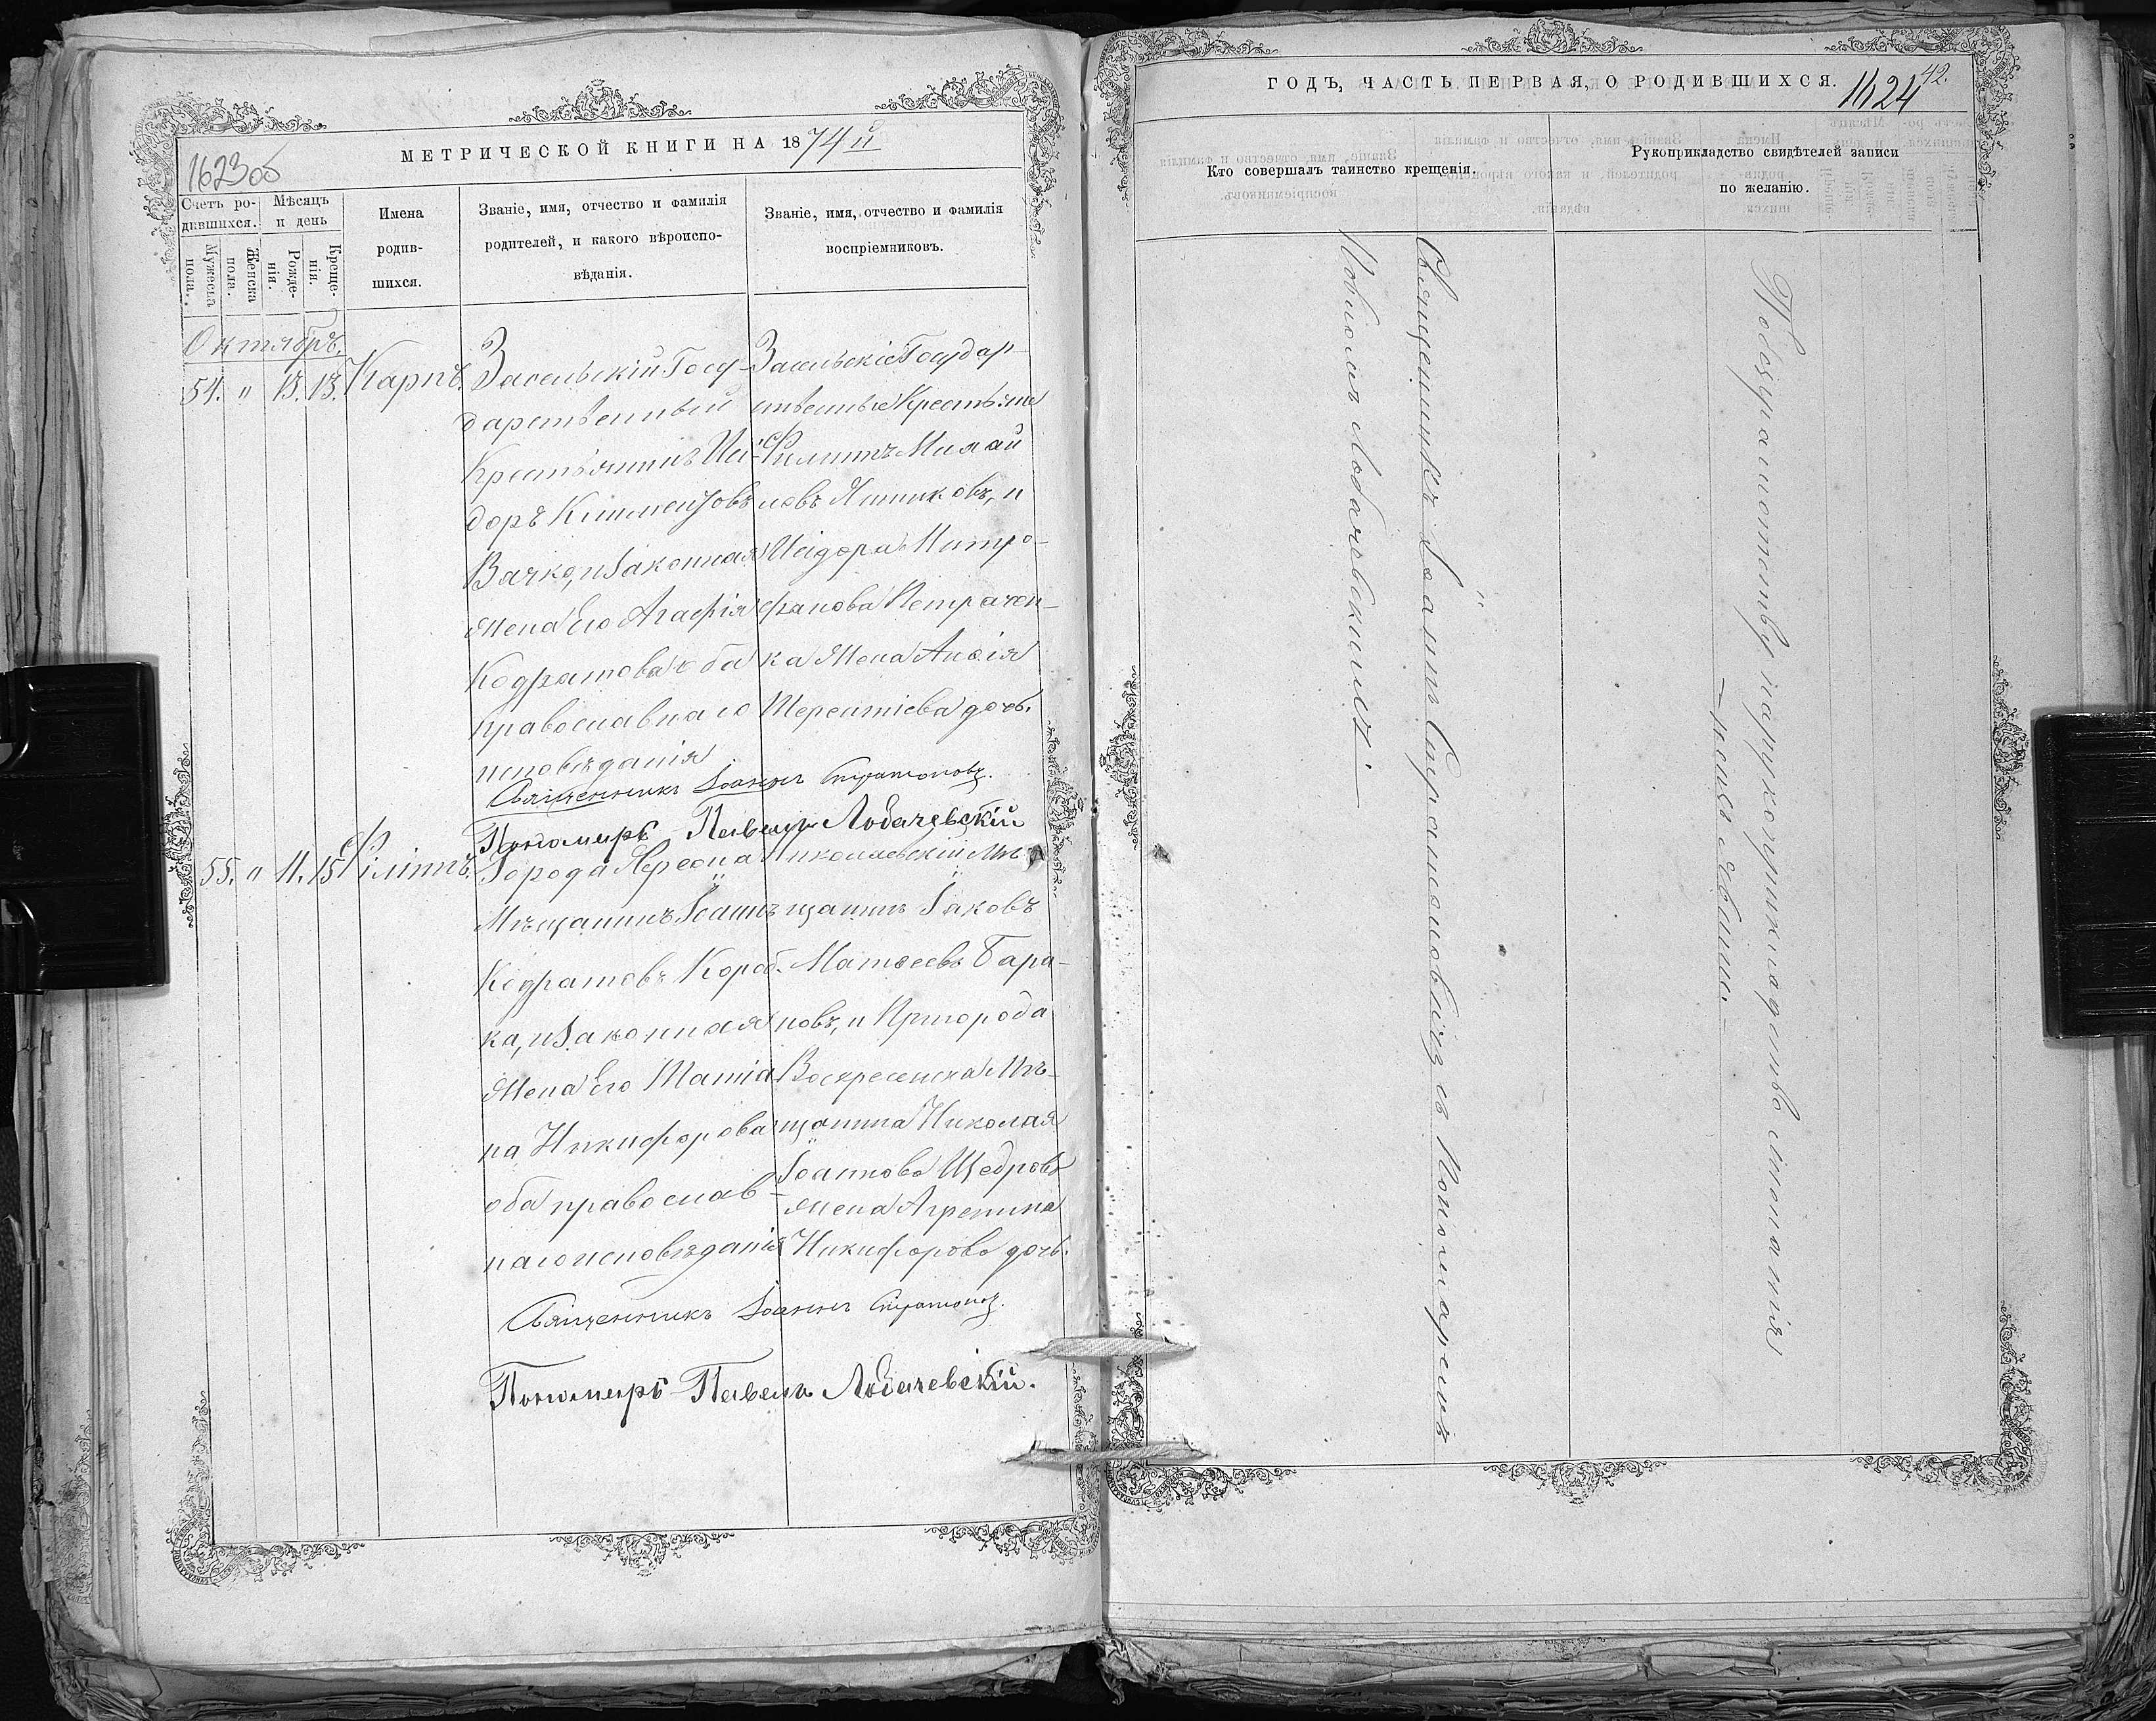 МЕТРИЧЕСКОЙ КНИГИ НА 1874й
1623об
Счетъ ро-
дившихся.
Мужеска
пола.
Женска
пола.
Мѣсяцъ
и день
Рожде-
нія.
Креще-
нія.
Имена
родив-
шихся.
Званіе, имя, отчество и фамилія
родителей, и какого вѣроиспо-
вѣданія.
Званіе, имя, отчество и фамилія
воспріемниковъ.
Октябрь.
54. " 13. 13. Карпъ.
Засельскій Госу-
дарственный
Крестьянинъ Иси-
доръ Климентовъ
Вачко, и законная
жена Его Агафія
Кодратова оба
православнаго
исповѣданія
Засельскіе Государ-
ственные Крестьяне
Филиппъ Михаи
ловъ Яшниковъ, и
Исидора Митро-
фанова Петрачен-
ка жена Анѳія
Терентіева дочь.
Священникъ Іоаннъ Стратоновъ.
Пономарь Павелъ Лобачевскій
55. " 11. 15 Філіппъ.
Города Херсона
Мѣщанинъ Іоаннъ
Кодратовъ Короб-
ка, и законная
жена Его Татіа-
на Никифорова
оба православ-
наго исповѣданія
Николаевскій Мѣ-
щанинъ Іаковъ
Матѳеевъ Бара-
новъ, и Пригорода
Воскресенска Мѣ-
щанина Николая
Іоаннова Щедрова
жена Агрепина
Никифорова дочь.
Священникъ Іоаннъ Стратоновъ.
Пономарь Павелъ Лобачевскій.
ГОДЪ, ЧАСТЬ ПЕРВАЯ, О РОДИВШИХСЯ.
1624
42.
Кто совершалъ таинство крещенія.
Рукоприкладство свидѣтелей записи
по желанію.
Священникъ Іоаннъ Стратоновъ съ Пономаремъ
Павломъ Лобачевскимъ.
По безграмотству къ рукоприкладству